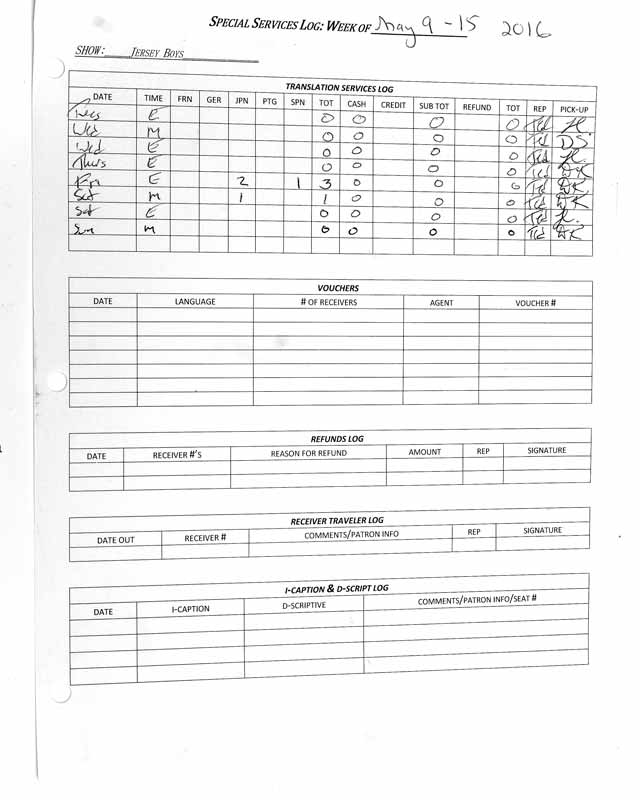 SPECIAL SERVICES LOG: WEEK OF May 9 - 15 2016
SHOW: JERSEY BOYS
TRANSLATION SERVICES LOG
DATE TIME FRN GER JPN PTG SPN TOT CASH CREDIT SUB TOT REFUND TOT REP PICK-UP
Tues E 0 0 0 0 Ted
Wed M 0 0 0 0 Ted DS
Wed E 0 0 0 0 Ted
Thurs E 0 0 0 0 Ted DK
Fri E 2 1 3 0 0 0 Ted DK
Sat M 1 1 0 0 0 Ted DK
Sat E 0 0 0 0 Ted
Sun M 0 0 0 0 Ted DK
VOUCHERS
DATE LANGUAGE # OF RECEIVERS AGENT VOUCHER #
REFUNDS LOG
DATE RECEIVER #'S REASON FOR REFUND AMOUNT REP SIGNATURE
RECEIVER TRAVELER LOG
DATE OUT RECEIVER # COMMENTS/PATRON INFO REP SIGNATURE
I-CAPTION & D-SCRIPT LOG
DATE I-CAPTION D-SCRIPTIVE COMMENTS/PATRON INFO/SEAT #